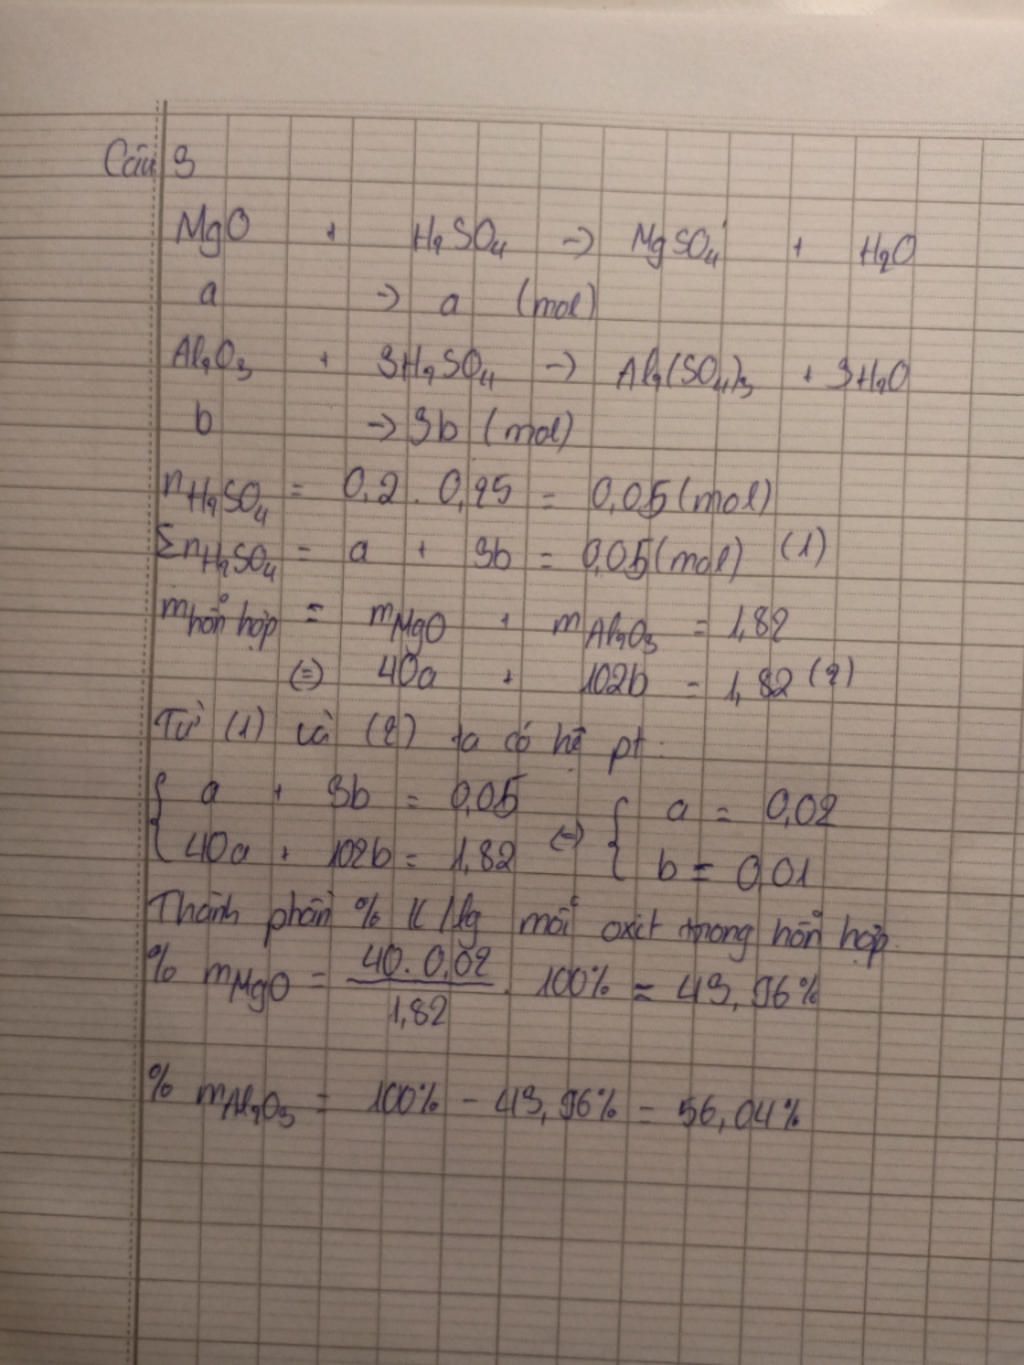 Câu 3
MgO + H₂SO₄ → MgSO₄ + H₂O
a → a (mol)
Al₂O₃ + 3H₂SO₄ → Al₂(SO₄)₃ + 3H₂O
b → 3b (mol)
nH₂SO₄ = 0,2 . 0,25 = 0,05 (mol)
ΣnH₂SO₄ = a + 3b = 0,05 (mol) (1)
mhỗn hợp = mMgO + mAl₂O₃ = 1,82
(=) 40a + 102b = 1,82 (2)
Từ (1) và (2) ta có hệ pt:
{ a + 3b = 0,05 (=) { a = 0,02
{ 40a + 102b = 1,82 { b = 0,01
Thành phần % K/lg mỗi oxit trong hỗn hợp.
% mMgO = 40. 0,02 / 1,82 . 100% = 43,96%
% mAl₂O₃ = 100% - 43,96% = 56,04%